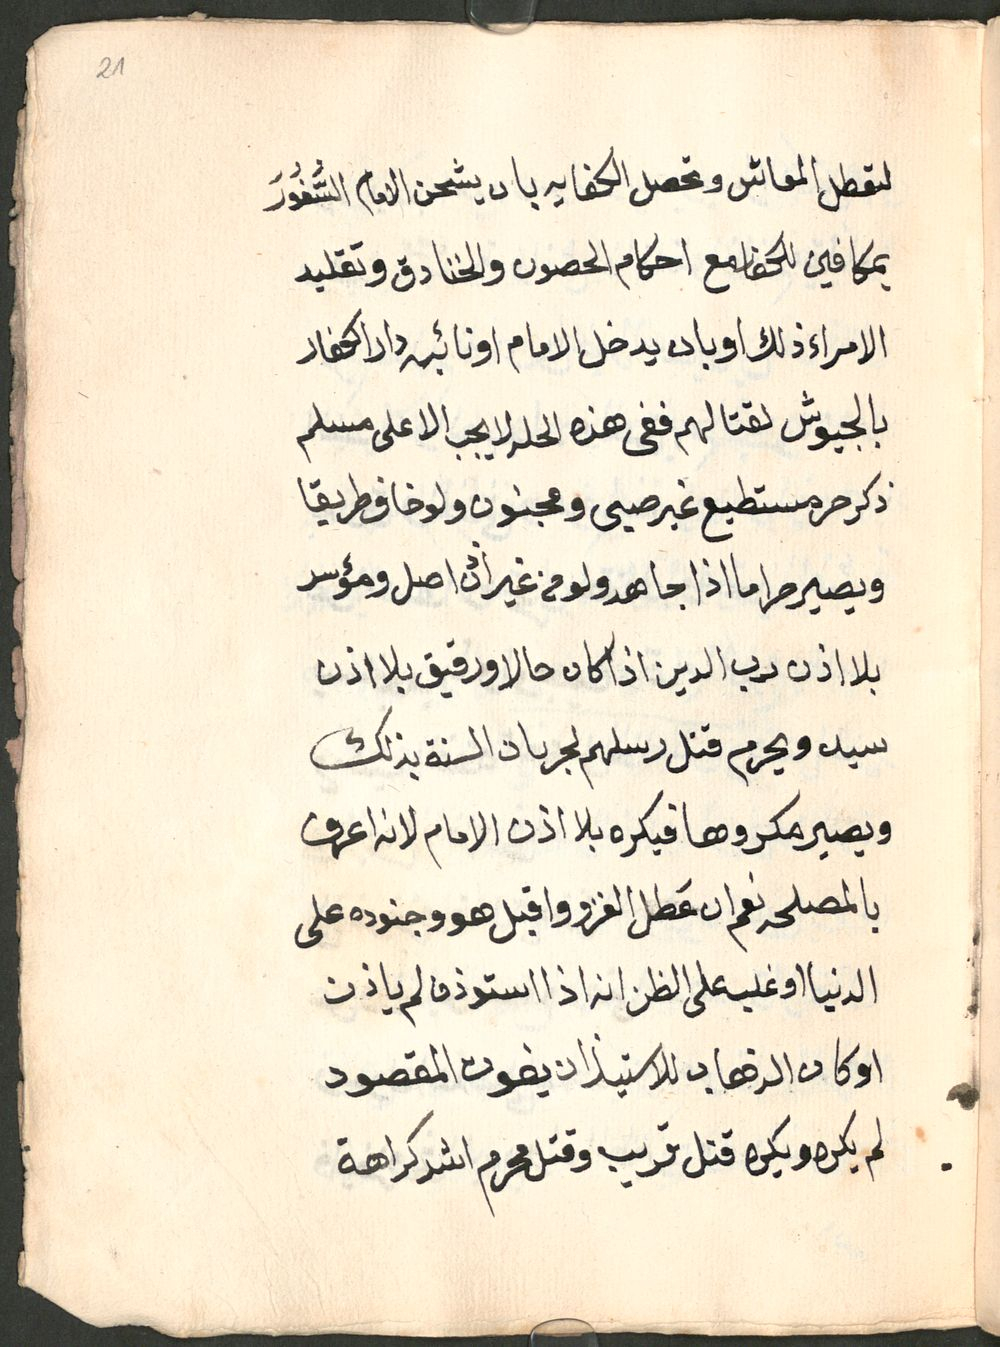 21
لتعطل المعاش وتحصل الكفايه بان يشحن الامام الثُّغُورَ
بمكافين للكفار مع احكام الحصون والخنادق وتقليد
الامراء ذلك او بان يدخل الامام او نائبه دار الكفار
بالجيوش لقتالهم ففي هذه الحله لا يجب الا على مسلم
ذكر حر مستطيع غير صبى ومجنون ولو خاف طريقا
ويصير حراما اذا جاهد ولو من غير اذن اصل ومؤسر
بلا اذن رب الدين اذا كان حالا ورقيق بلا اذن
سيده ويحرم قتل رسلهم لجريان السنة بذلك
ويصير مكروها فيكره بلا اذن الامام لانه اعرف
بالمصلحه نعم ان عَطل الغزو واقبل هو وجنوده على
الدنيا او غلب على الظن انه اذا استوذن لم ياذن
او كان الذهاب للاستيذان يفوت المقصود
لم يكره ويكره قتل قريب وقتل محرم اشد كراهة